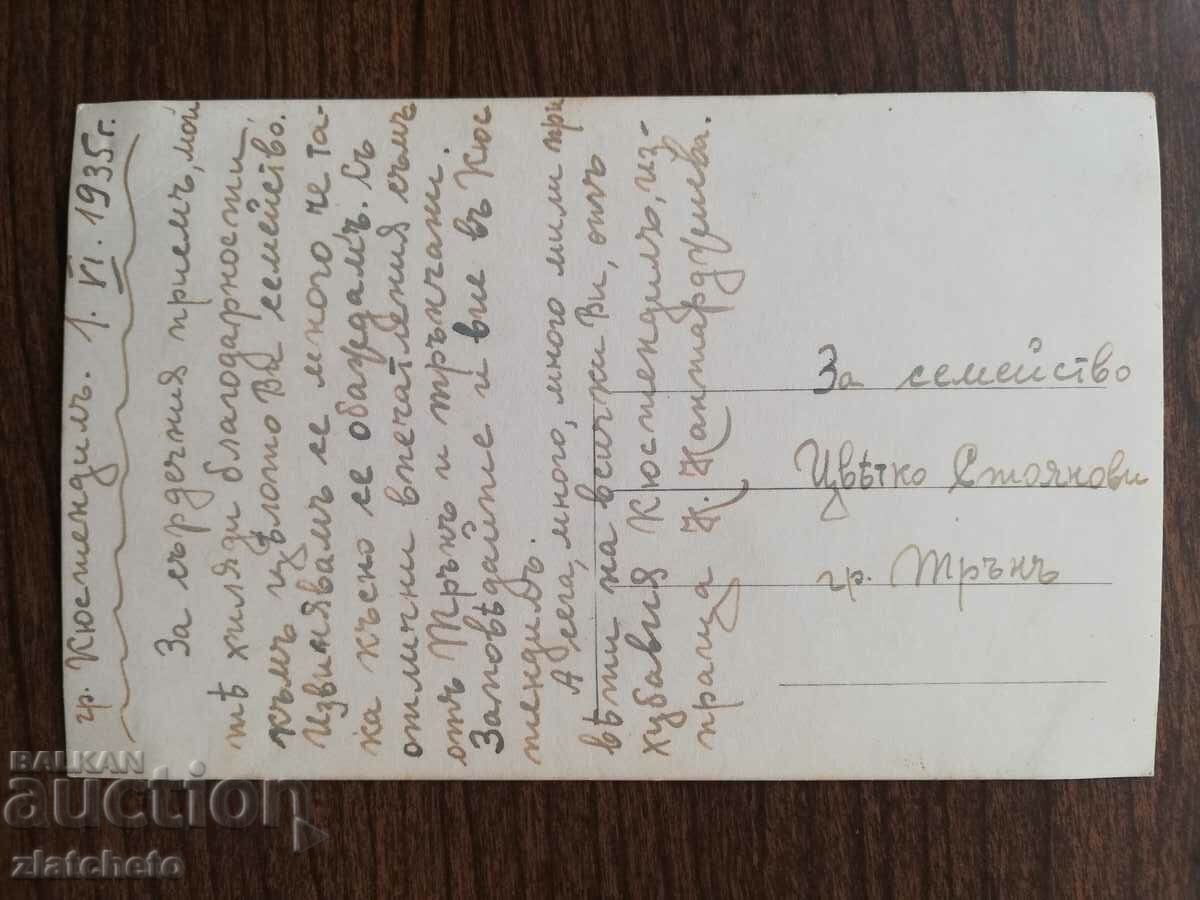 гр. Кюстендилъ. 1. VI. 1935 г.
За сърдечния приемъ, мой
тѣ хиляди благодарности
къмъ цѣлото Ви семейство.
Извинявамъ се много че та-
ка късно се обаждамъ. Съ
отлични впечатления съмъ
отъ Трънъ и трънчани.
Заповѣдайте и вие въ Кюс
тендилъ.
А сега, много, много мили при
вѣти на всички Ви, отъ
хубавия Кюстендилъ, из-
праща К. Кантарджиева.
За семейство
Цвѣтко Стоянови
гр. Трънъ
BALKAN
auction
zlatcheto